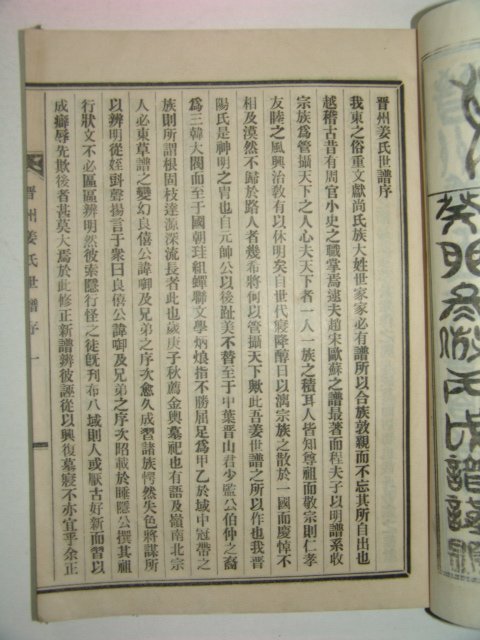 晋州姜氏世譜序
我東之俗重文獻尚氏族大姓世家家必有譜所以合族敦親而不忘其所自出也
越稽古昔有周官小史之職掌焉逮夫趙宋歐蘇之譜最著而程夫子以明譜系收
宗族爲管攝天下之人心夫天下者一人一族之積耳人皆知尊祖而敬宗則仁孝
友睦之風興治教有以休明矣自世代寢降醇日以漓宗族之散於一國而慶悼不
相及漠然不歸於路人者幾希將何以管攝天下歟此吾姜世譜之所以作也我晋
陽氏是神明之胄也自元帥公以後趾美不替至于甲葉晋山君少監公伯仲之裔
爲三韓大閥而至于國朝珪組蟬聯文學炳烺指不勝屈足爲甲乙於域中冠帶之
族則所謂根固枝達源深流長者此也歲庚子秋薦金輿墓祀也有語及嶺南北宗
人必東草譜之變幻良僖公諱御及兄弟之序次愈久成習諸族愕然失色將謀所
以辨明從姪 聲揚言于衆曰良僖公諱御及兄弟之序次昭載於睡隱公撰其祖
行狀文不必區區辨明然彼索隱行怪之徒旣刊布八域則人或厭古好新而習以
成癖辱先欺後者甚莫大焉於此修正新譜辨彼誣從以興復墓寢不亦宜乎余正
晋州姜氏世譜序 一